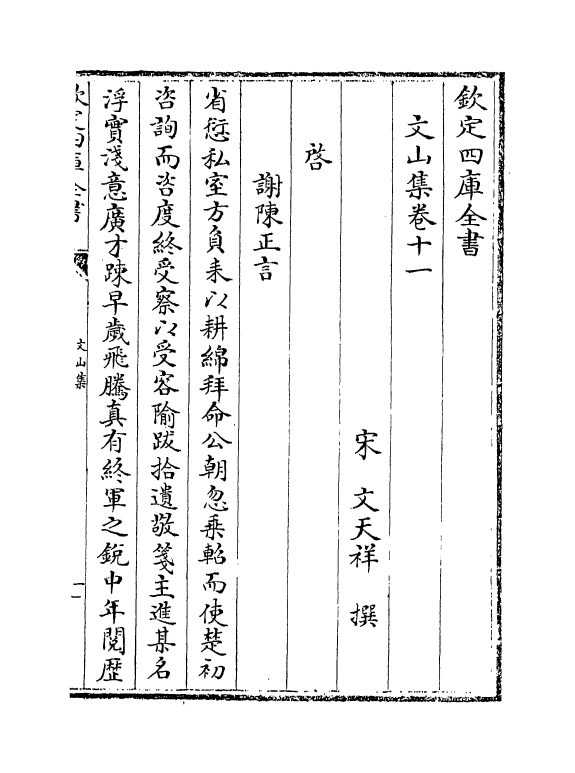 欽定四庫全書
文山集卷十一
宋　文天祥　撰
啓
謝陳正言
省愆私室方負耒以耕綿拜命公朝忽乗軺而使楚初
咨詢而咨度終受察以受容隃跋拾遺敬箋主進某名
浮實淺意廣才踈早歲飛騰真有終軍之鋭中年閱歴
欽定四庫全書
文山集
一